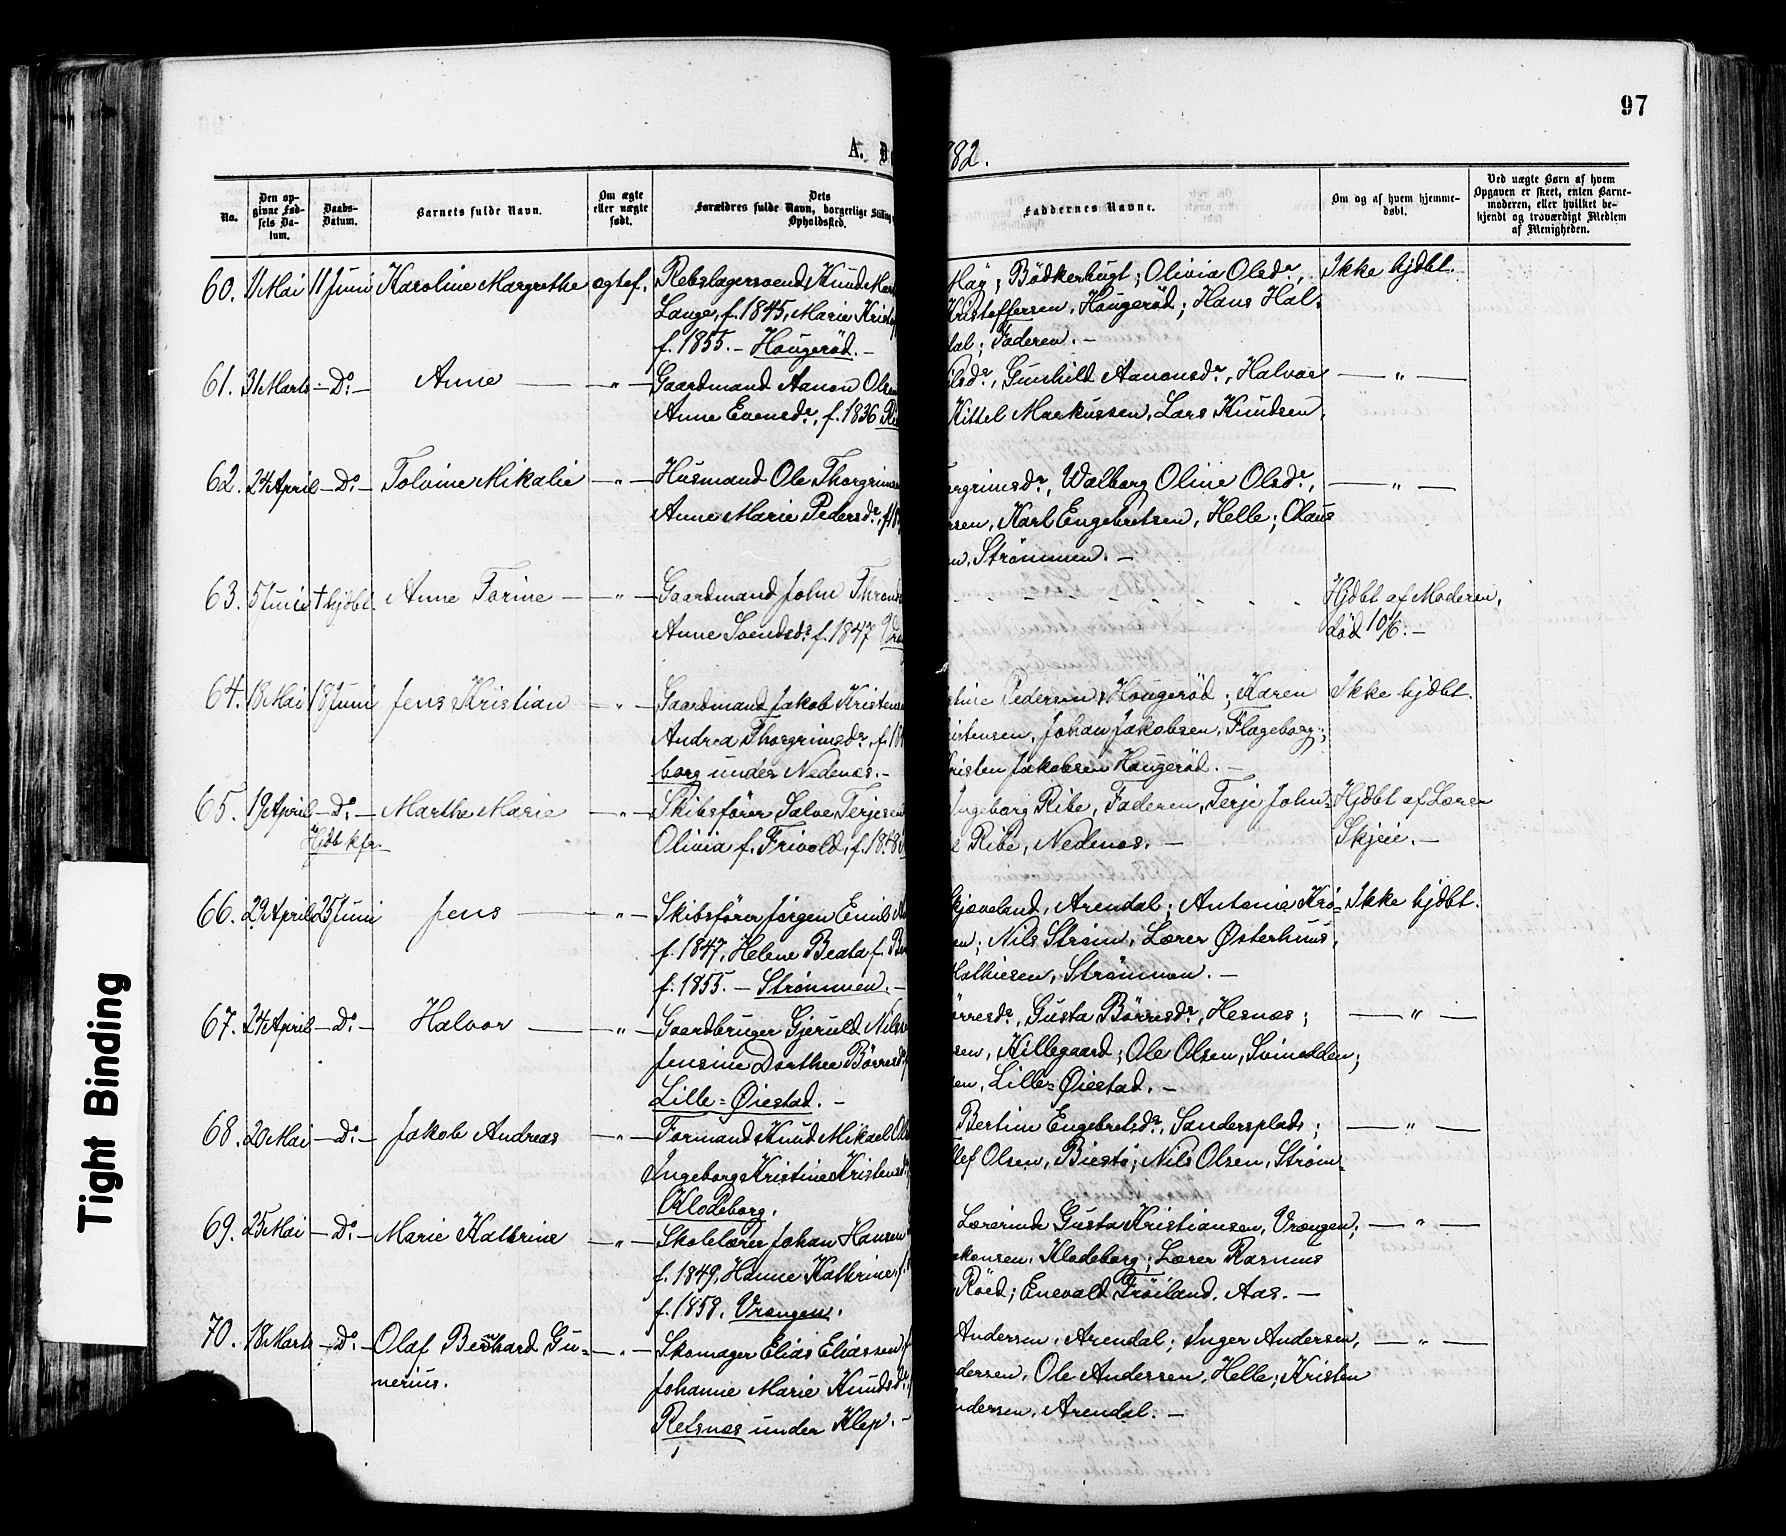 97
A. D
82.
No.
Den op-
givne Fød-
sels Da-
tum.
Daabs-
Datum.
Barnets fulde Navn.
Om ægte
eller uægte
født.
Dets
Forældres fulde Navn, borgerlige Stilling
Opholdssted.
Faddernes Navne.
Om og af hvem hjemme-
døbt.
Ved uægte Børn af hvem
Opgaven er skeet, enten Barne-
moderen, eller hvilket be-
kjendt og troværdigt Medlem
af Menigheden.
60. 11 Mai 11 Juni Karoline Margrethe ægtef. Rebslagersvend Knud
Lange, f. 1845, Marie
f. 1855. – Hougerød. –
Bødkerbugt; Olivia Olsdr, Ikke hjdbt.
Kristoffersen, Hougerød; Hans Hal-
dal; Faderen. –
61. 31 Marts – Do – Anne — „ — Gaardmand Aanon Olsen
Anne Evensdr, f. 1836
Olsdr, Gunhild Aanonsdr, Halvor — „ —
Kittel Markussen, Lars Knudsen,
62. 24 April – Do – Tolvine Mikalie — „ — Husmand Ole Thorgrimsen
Anne Marie Pedersdr, f. 18
Torgrimsdr, Walborg Oline Olsdr, — „ —
sen, Karl Engebretsen, Helle; Olaus
n, Strømmen. –
63. 5 Juni † hjdbt. Anne Torine — „ — Gaardmand John Thrond
Anne Svendsdr f. 1847
Hjdbt af Moderen,
død 10/6. –
64. 18 Mai 18 Juni Jens Kristian — „ — Gaardmand Jakob Kristens
Andrea Thorgrimsdr, f. 18
borg under Nedenæs. –
stine Pedersen, Hougerød; Karen Ikke hjdbt.
istensen, Johan Jakobsen, Flageborg;
Kristen Jakobsen Hougerød. –
65. 19 April – Do – Marthe Marie — „ — Skibsfører Salve Terjesen
Hjdbt kfr.
Olivia f. Frivold, f. 1848
Ingeborg Ribe, Faderen, Terje John- Hjdbt af Lærer
Ribe, Nedenæs. – Skjeie. –
66. 29 April 25 Juni Jens — „ — Skibsfører Jørgen Emil
f. 1847, Helene Beata f.
f. 1855. – Strømmen. –
Skjæveland, Arendal; Antonie Krø- Ikke hjdbt.
en; Nils Strøm, Lærer Østerhuus,
Mathiesen, Strømmen. –
67. 24 April – Do – Halvor — „ — Gaardbruger Gjeruld Nils
Jensine Dorthea Børresdr
Lille-Øiestad. –
ørresdr, Gusta Børresdr, Hesnæs; — „ —
sen, Hillegaard; Ole Olsen, Svinodden;
en, Lille-Øiestad. –
68. 20 Mai – Do – Jakob Andreas — „ — Formand Knud Mikael
Ingeborg Kristine Kristensdr
Klodeborg.
Bertine Engebretsdr, Sandersplads; — „ —
lef Olsen, Biestø; Nils Olsen, Strøm-
69. 25 Mai – Do – Marie Kathrine — „ — Skolelærer Johan Hansen
f. 1849, Hanne Kathrine, f.
f. 1858. Vrængen.
Lærerinde Gusta Kristiansen, Vrængen; — „ —
akonsen, Klodeborg; Lærer Rasmus
Røed; Enevald Frøiland, Aas. –
70. 18 Marts – Do – Olaf Bernhard Gu- — „ — Skomager Elias Eliassen,
nerius. Johanne Marie Knudsdr,
Retsnæs under Klep. –
Andersen, Arendal; Inger Andersen, — „ —
dersen, Ole Andersen, Helle; Kristen
ndersen, Arendal. –
Tight Binding